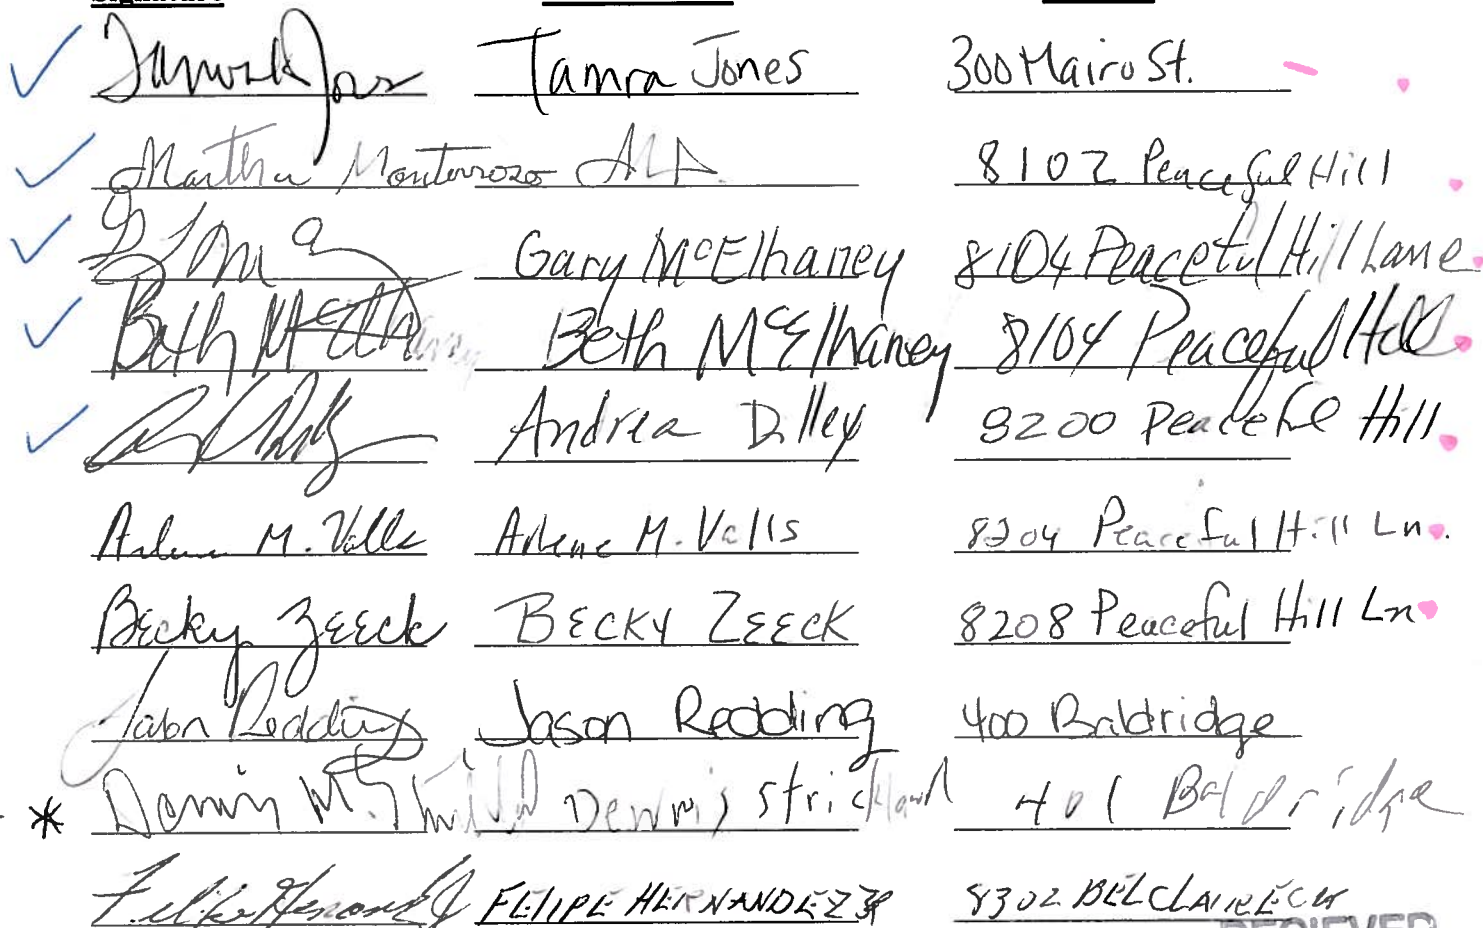 Signature
Tamra Jones 300 Mairo St.
Martha Monterroso 8102 Peaceful Hill
Gary McElhaney 8104 Peaceful Hill Lane
Beth McElhaney Beth McElhaney 8104 Peaceful Hill
Andrea Dilley 8200 Peaceful Hill
Arlene M. Valls Arlene M. Valls 8204 Peaceful Hill Ln.
Becky Zeeck BECKY ZEECK 8208 Peaceful Hill Ln
Jason Redding Jason Redding 400 Baldridge
* Dennis Strickland 401 Baldridge
FELIPE HERNANDEZ JR 8302 BELCLAIRE CIR